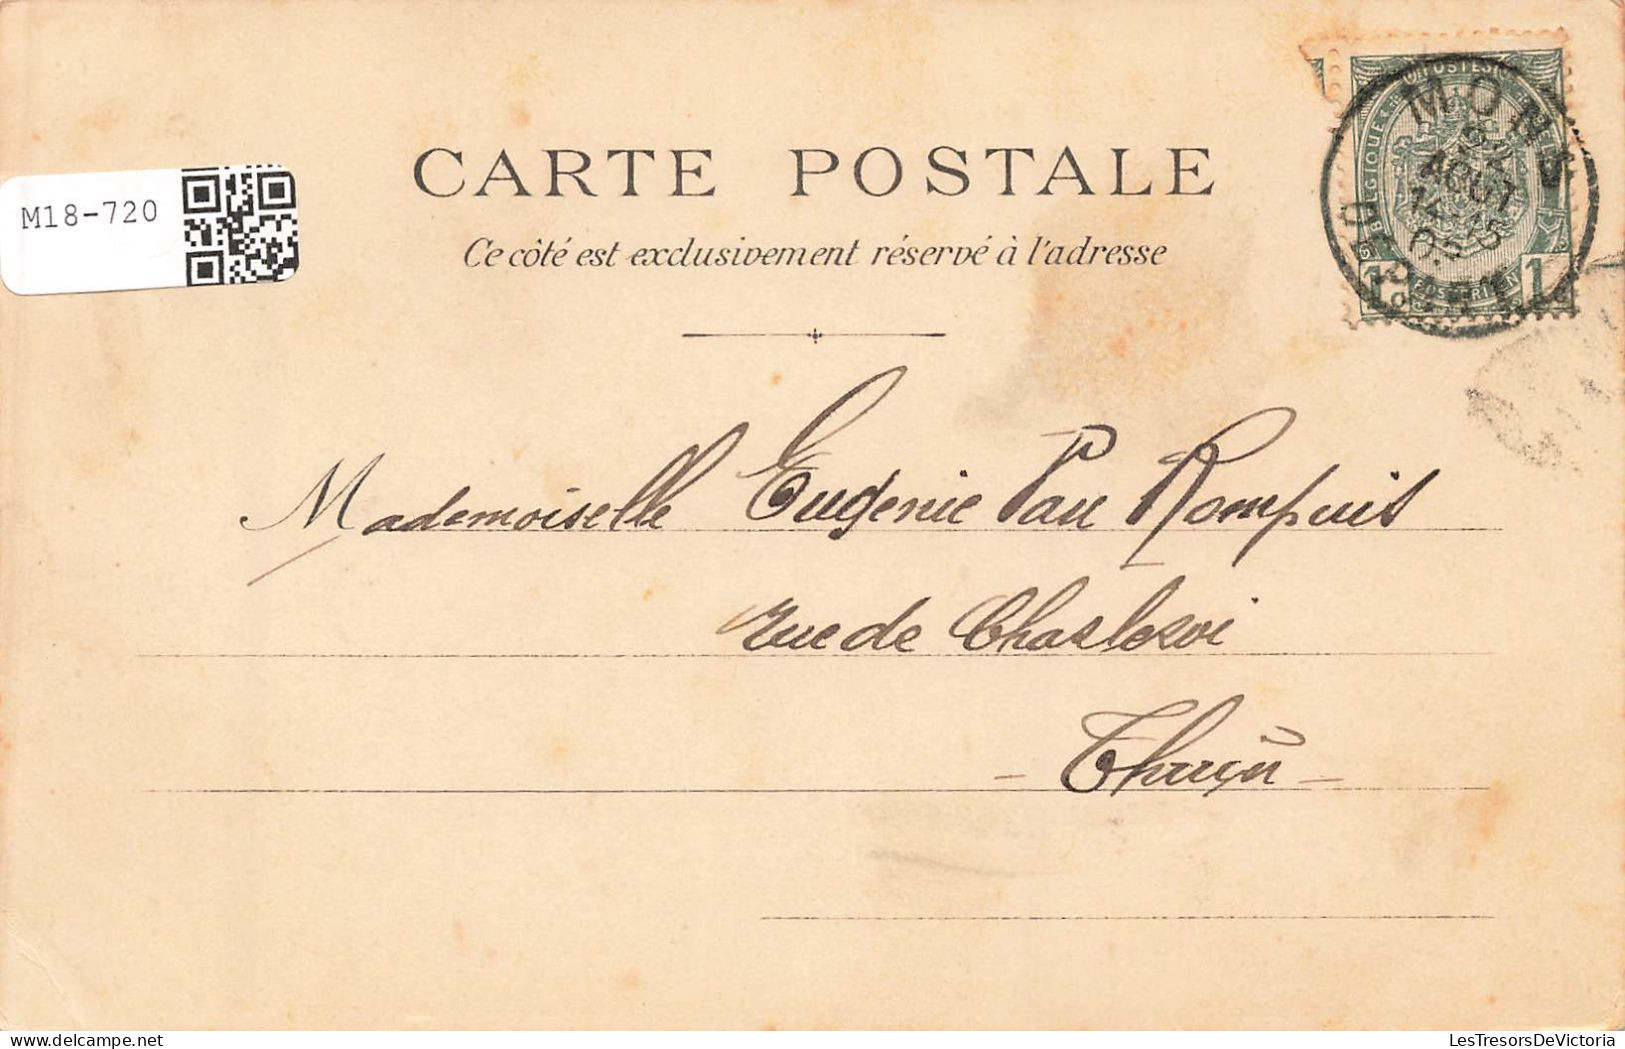 M18-720
CARTE POSTALE
Ce côté est exclusivement réservé à l'adresse
MONS
AOUT
DÉPART
BELGIQUE
1 1
Mademoiselle Eugenie Van Rompuis
Rue de Charleroi
Thuin
LesTresorsDeVictoria